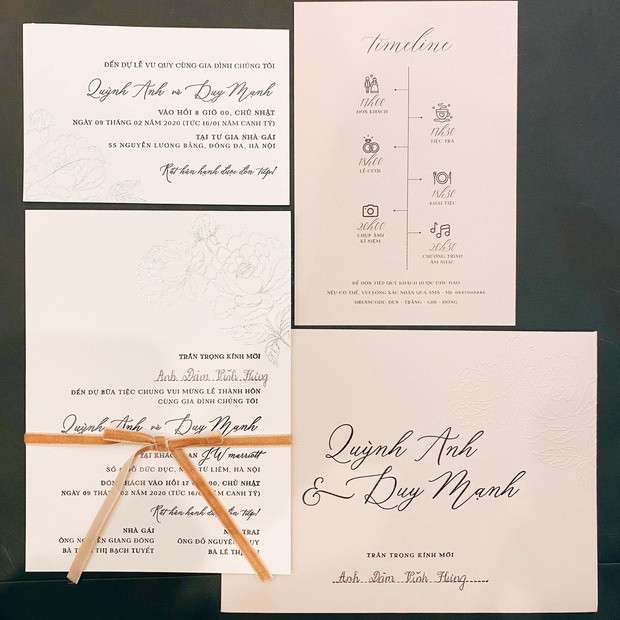 ĐẾN DỰ LỄ VU QUY CÙNG GIA ĐÌNH CHÚNG TÔI
Quỳnh Anh và Duy Mạnh
VÀO HỒI 8 GIỜ 00, CHỦ NHẬT
NGÀY 09 THÁNG 02 NĂM 2020 (TỨC 16/01 NĂM CANH TÝ)
TẠI TƯ GIA NHÀ GÁI
55 NGUYỄN LƯƠNG BẰNG, ĐỐNG ĐA, HÀ NỘI
Rất hân hạnh được đón tiếp!
timeline
17h00
ĐÓN KHÁCH
17h30
TIỆC TRÀ
18h00
LỄ CƯỚI
18h30
KHAI TIỆC
20h00
CHỤP ẢNH
KỈ NIỆM
20h30
CHƯƠNG TRÌNH
ÂM NHẠC
ĐỂ ĐÓN TIẾP QUÝ KHÁCH ĐƯỢC CHU ĐÁO
NẾU CÓ THỂ, VUI LÒNG XÁC NHẬN QUA SMS -
DRESSCODE: ĐEN - TRẮNG - GHI - HỒNG
TRÂN TRỌNG KÍNH MỜI
Anh Đàm Vĩnh Hưng
ĐẾN DỰ BỮA TIỆC CHUNG VUI MỪNG LỄ THÀNH HÔN
CÙNG GIA ĐÌNH CHÚNG TÔI
Quỳnh Anh và Duy Mạnh
TẠI KHÁCH SẠN JW marriott
SỐ ĐỖ ĐỨC DỤC, TỪ LIÊM, HÀ NỘI
ĐÓN KHÁCH VÀO HỒI 17 CHỦ NHẬT
NGÀY 09 THÁNG 02 NĂM 2020 (TỨC 16/01 NĂM CANH TÝ)
Rất hân hạnh được đón tiếp!
NHÀ GÁI
ÔNG NGUYỄN GIANG ĐÔNG
BÀ THỊ BẠCH TUYẾT
NHÀ TRAI
ÔNG ĐỖ NGUYÊN
BÀ LÊ THỊ
Quỳnh Anh
& Duy Mạnh
TRÂN TRỌNG KÍNH MỜI
Anh Đàm Vĩnh Hưng